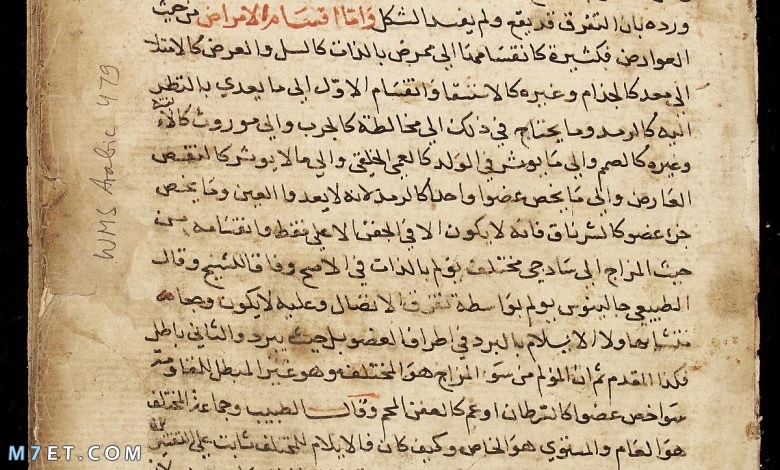 ورده بان التفرق قد يقع ولم يفسد الشكل واما اقسام الامراض من حيث
العوارض فكثيرة كانقسامها الى ممرض بالذات كالسل والعرض كالامتلا
الى معد كالجذام وغيره كالاستسقا وانقسام الاول الى ما يعدي بالنظر
اليه كالرمد وما يحتاج في ذلك الى مخالطة كالجرب والى موروث
وغيره كالصمم والى ما يوثر في الولد كالعمى الخلقي والى ما لا يوثر كالنقص
العارض والى ما يخص عضوا واحدا كالرمد لانه لا يعدوا العين وما يخص
جزء عضو كالشرناق فانه لا يكون الا في الجفن الاعلى فقط وانقسامه من
حيث المزاج الى ساذجي مختلف يولم بالذات في الاصح وفاقا للشيخ وقال
الطبيعي جالينوس يولم بواسطة تفرق الاتصال وعليه لا يكون وجعا
متشابها ولا الايلام بالبرد في اطراف العضو بل حيث يبرد والثاني باطل
فكذا المقدم ثم ان المولم من سو المزاج هو المختلف وهو غير المبطل للمقاومة
سوا خص عضوا كالسرطان او عم كالعفن الحمى وقال الطبيب وجماعة المختلف
هو العام والمستوي هو الخاص وكيف كان فالايلام للمختلف ثابت على
WMS Arabic 479
M7ET.COM